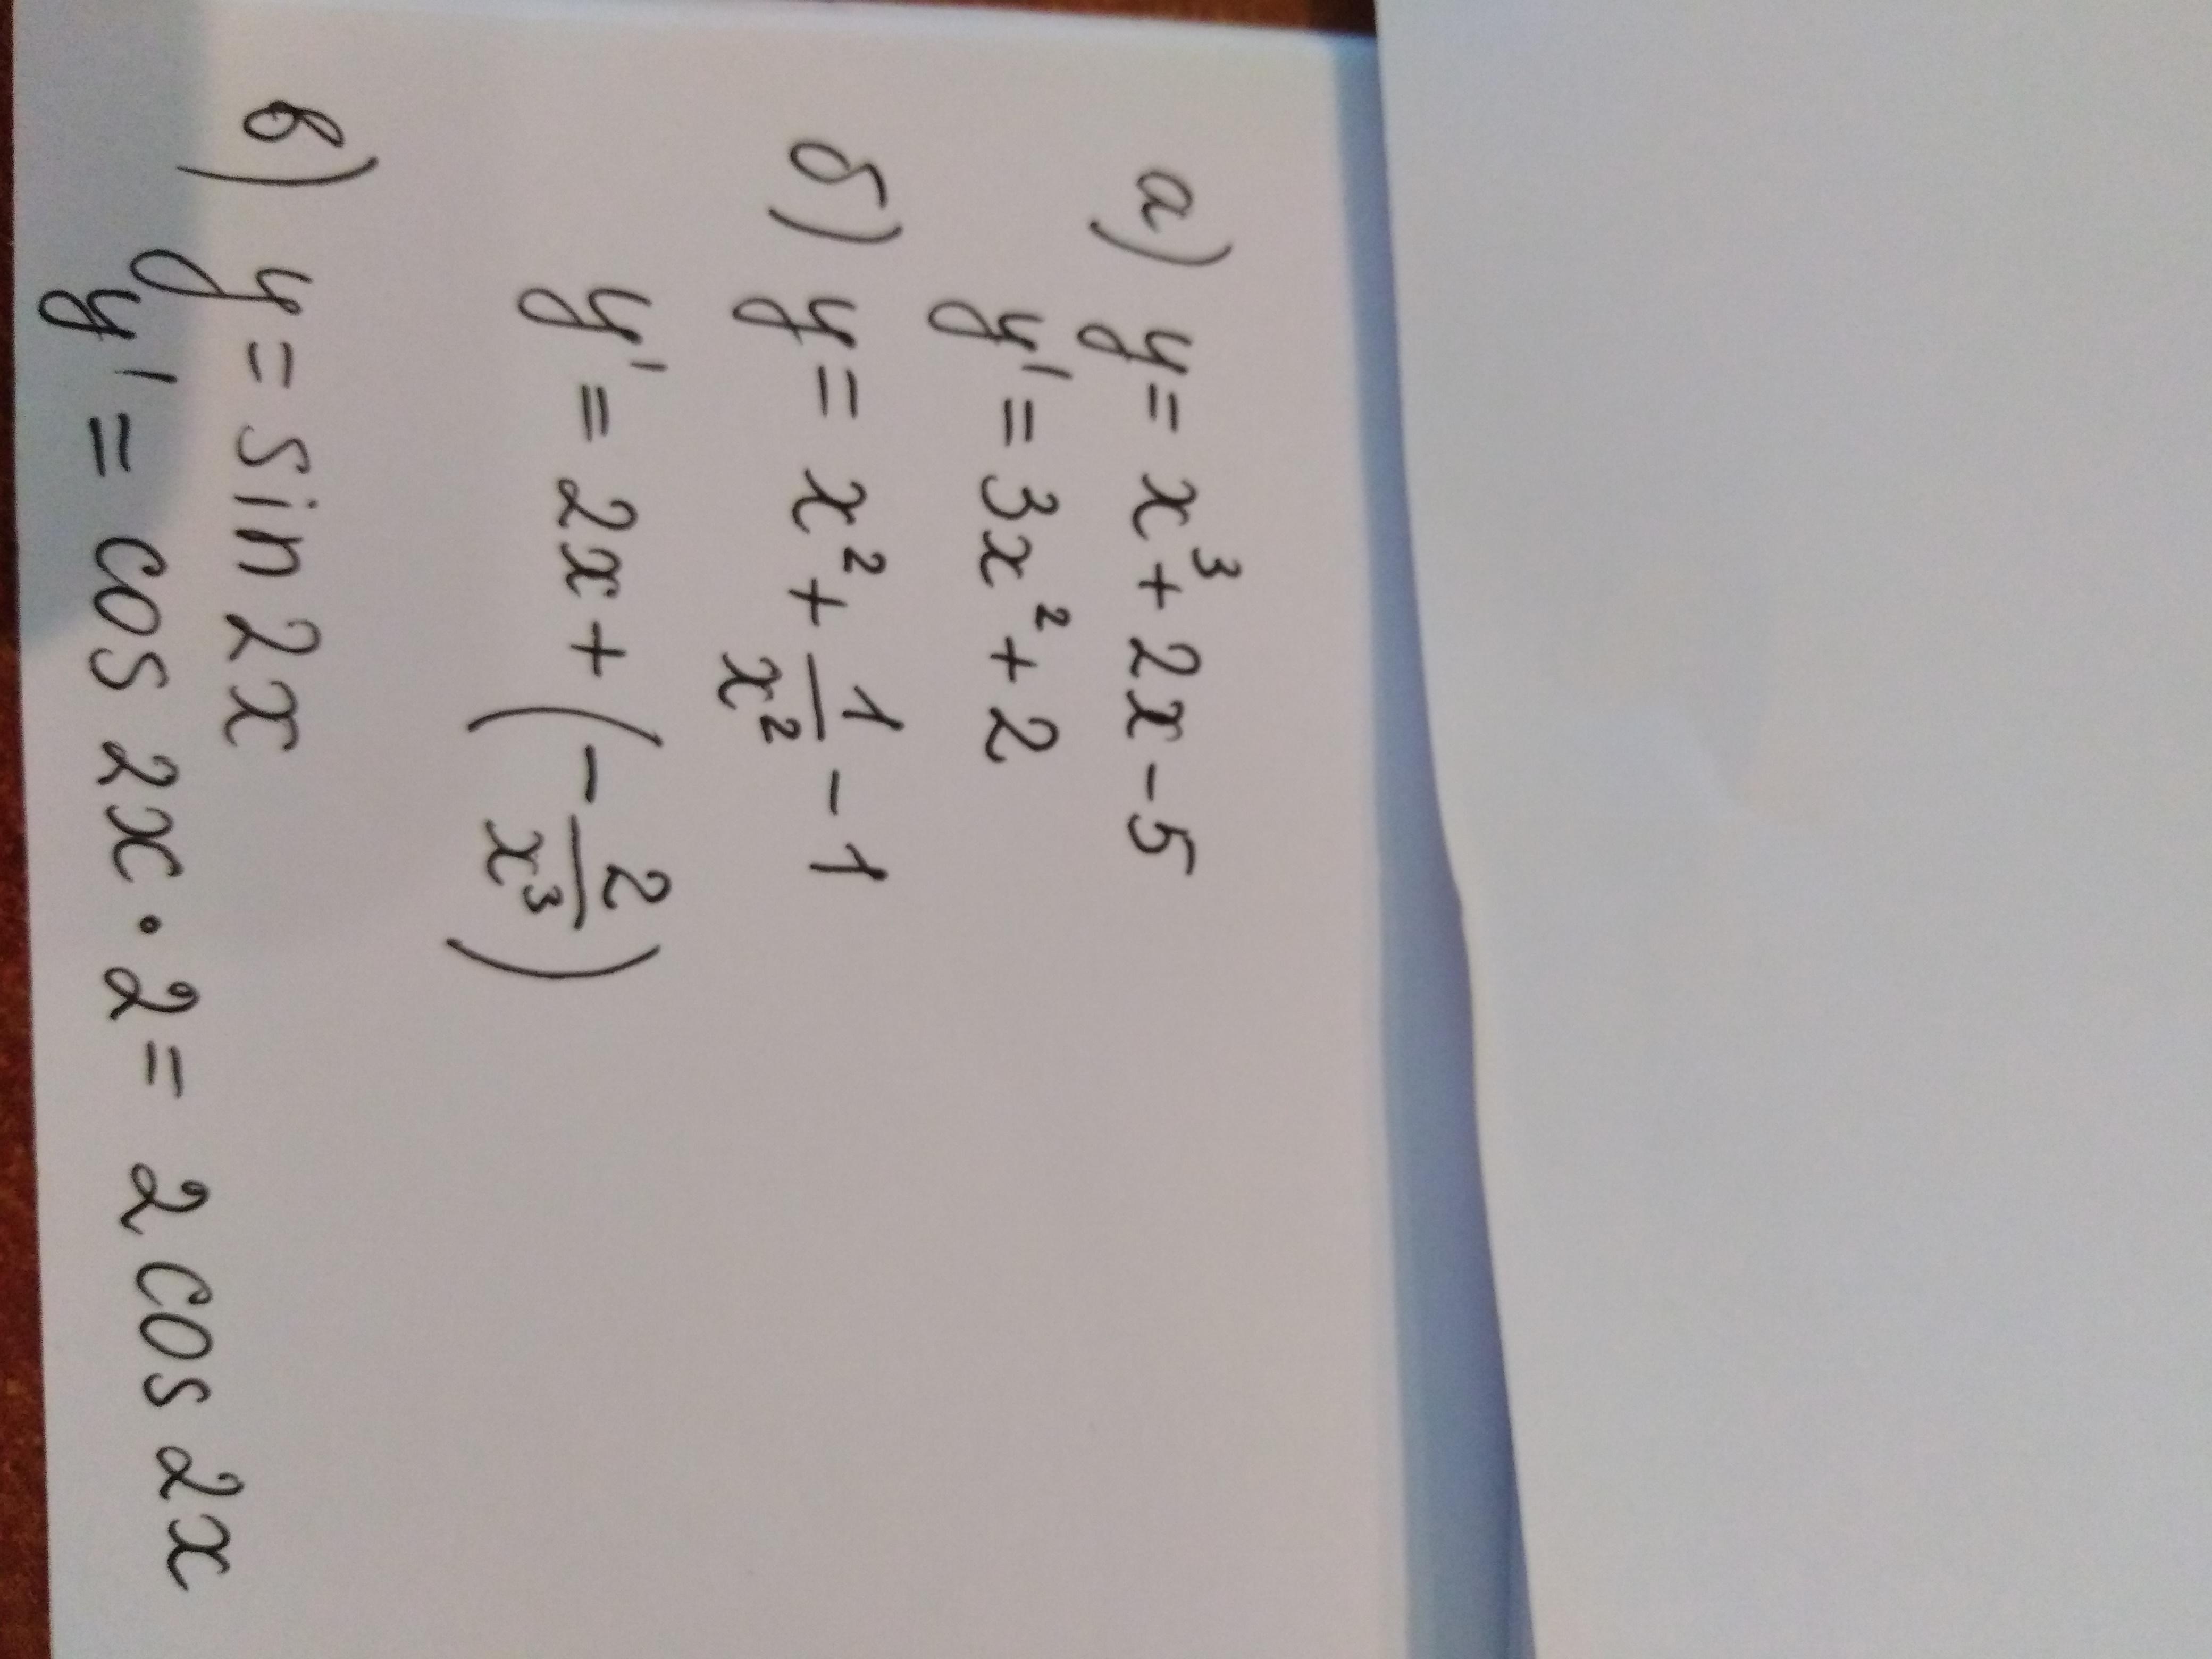 а) y = x³ + 2x - 5
y' = 3x² + 2
б) y = x² + 1/x² - 1
y' = 2x + (-2/x³)
в) y = sin 2x
y' = cos 2x · 2 = 2 cos 2x